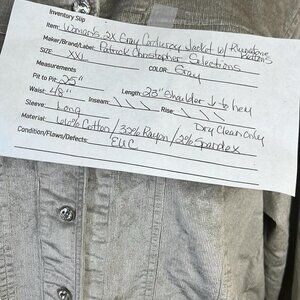 Inventory Slip
Item: Women's 2X Gray Corduroy Jacket w/ Rhinestone Buttons
Maker/Brand/Label: Patrick Christopher Selections
SIZE: XXL COLOR: Gray
Measurements
Pit to Pit: 25" Length: 23" Shoulder ↓ to hem
Waist: 48" Inseam: \ \ \ Rise: \ \ \
Sleeve: Long
Material: 66% Cotton / 32% Rayon / 2% Spandex Dry Clean Only
Condition/Flaws/Defects: EUC